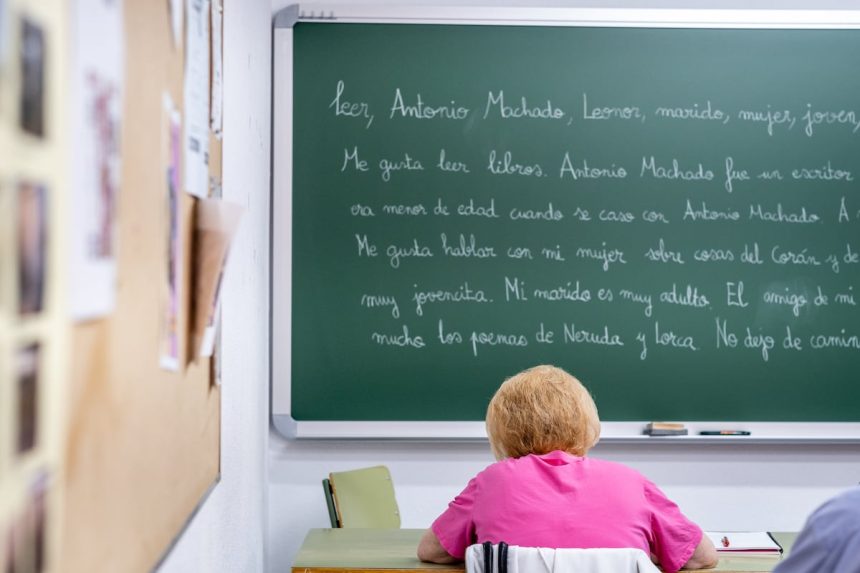 Leer, Antonio Machado, Leonor, marido, mujer, joven,
Me gusta leer libros. Antonio Machado fue un escritor
era menor de edad cuando se caso con Antonio Machado. A
Me gusta hablar con mi mujer sobre cosas del Corán y de
muy jovencita. Mi marido es muy adulto. El amigo de mi
mucho los poemas de Neruda y Lorca. No dejo de camin